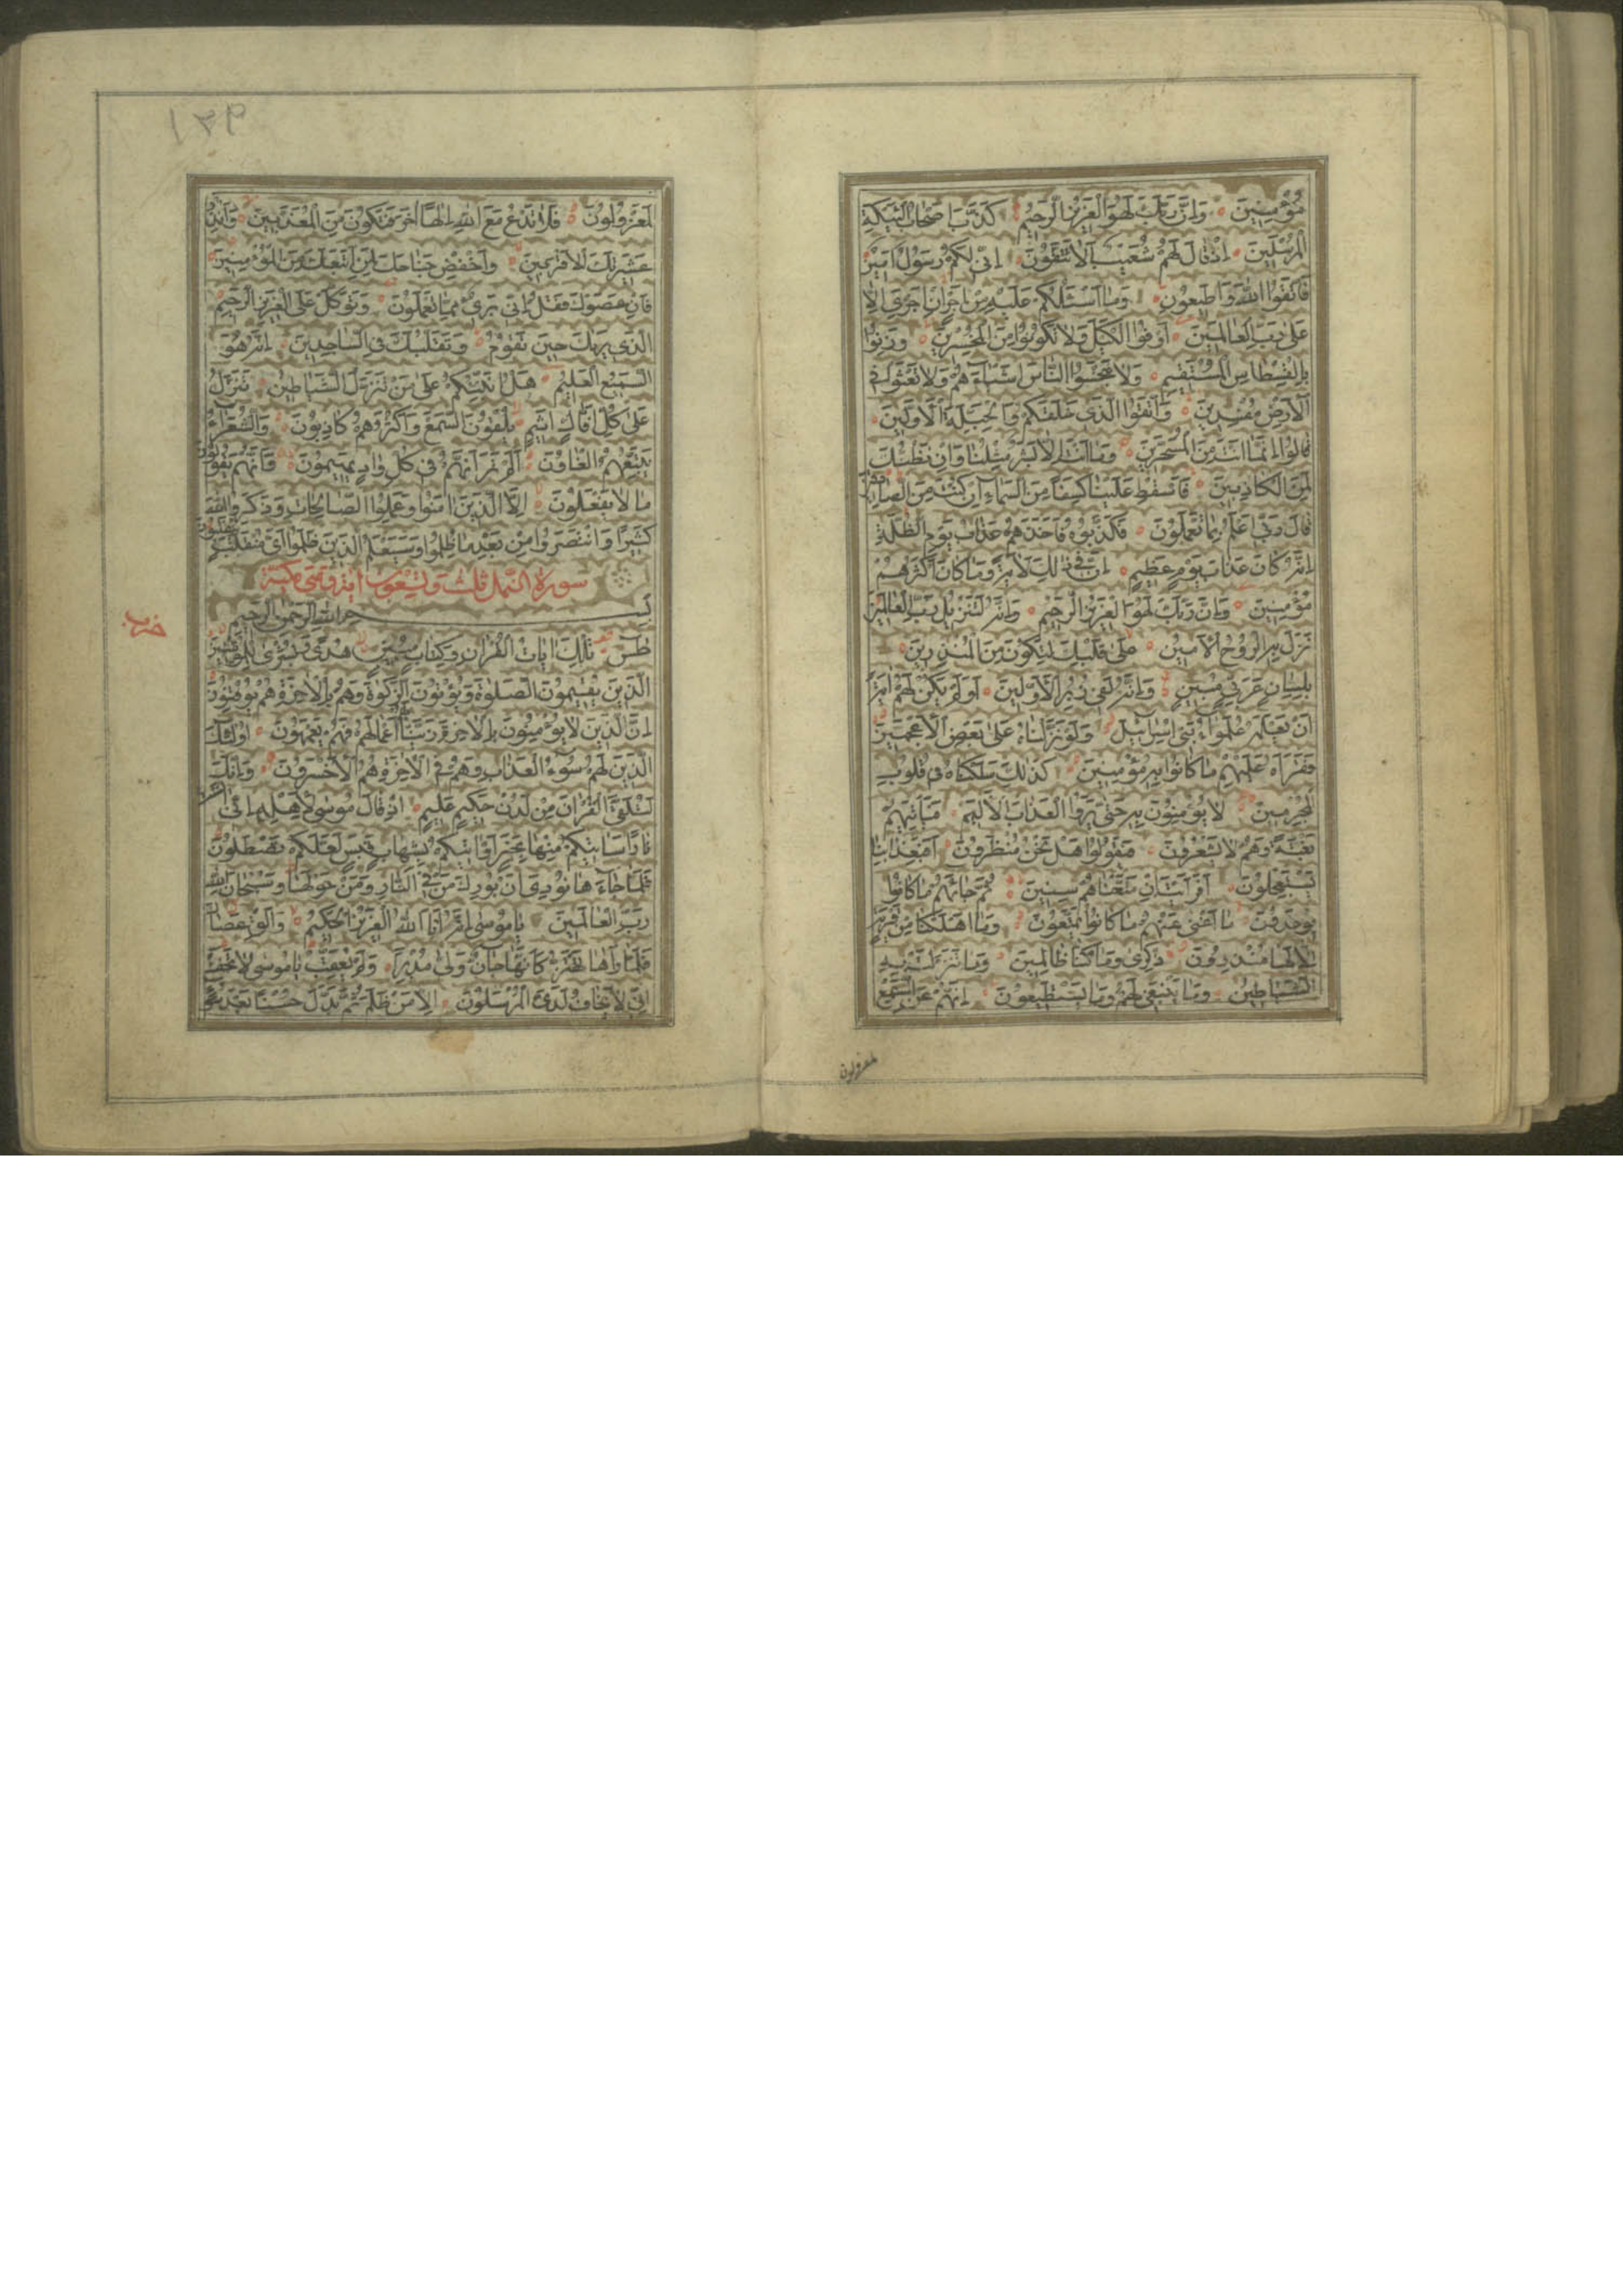 مُؤْمِنِينَ وَاِنَّ رَبَّكَ لَهُوَ الْعَزِيزُ الرَّحِيمُ كَذَّبَ اَصْحَابُ لْئَيْكَةِ
الْمُرْسَلِينَ اِذْ قَالَ لَهُمْ شُعَيْبٌ اَلَا تَتَّقُونَ اِنِّي لَكُمْ رَسُولٌ اَمِينٌ
فَاتَّقُوا اللّٰهَ وَاَطِيعُونِ وَمَا اَسْئَلُكُمْ عَلَيْهِ مِنْ اَجْرٍ اِنْ اَجْرِيَ اِلَّا
عَلٰى رَبِّ الْعَالَمِينَ اَوْفُوا الْكَيْلَ وَلَا تَكُونُوا مِنَ الْمُخْسِرِينَ وَزِنُوا
بِالْقِسْطَاسِ الْمُسْتَقِيمِ وَلَا تَبْخَسُوا النَّاسَ اَشْيَاءَهُمْ وَلَا تَعْثَوْا فِي
الْاَرْضِ مُفْسِدِينَ وَاتَّقُوا الَّذِي خَلَقَكُمْ وَالْجِبِلَّةَ الْاَوَّلِينَ
قَالُوا اِنَّمَا اَنْتَ مِنَ الْمُسَحَّرِينَ وَمَا اَنْتَ اِلَّا بَشَرٌ مِثْلُنَا وَاِنْ نَظُنُّكَ
لَمِنَ الْكَاذِبِينَ فَاَسْقِطْ عَلَيْنَا كِسَفًا مِنَ السَّمَاءِ اِنْ كُنْتَ مِنَ الصَّادِقِينَ
قَالَ رَبِّي اَعْلَمُ بِمَا تَعْمَلُونَ فَكَذَّبُوهُ فَاَخَذَهُمْ عَذَابُ يَوْمِ الظُّلَّةِ
اِنَّهُ كَانَ عَذَابَ يَوْمٍ عَظِيمٍ اِنَّ فِي ذٰلِكَ لَاٰيَةً وَمَا كَانَ اَكْثَرُهُمْ
مُؤْمِنِينَ وَاِنَّ رَبَّكَ لَهُوَ الْعَزِيزُ الرَّحِيمُ وَاِنَّهُ لَتَنْزِيلُ رَبِّ الْعَالَمِينَ
نَزَلَ بِهِ الرُّوحُ الْاَمِينُ عَلٰى قَلْبِكَ لِتَكُونَ مِنَ الْمُنْذِرِينَ
بِلِسَانٍ عَرَبِيٍّ مُبِينٍ وَاِنَّهُ لَفِي زُبُرِ الْاَوَّلِينَ اَوَلَمْ يَكُنْ لَهُمْ اٰيَةً
اَنْ يَعْلَمَهُ عُلَمٰؤُا بَنِي اِسْرَائِيلَ وَلَوْ نَزَّلْنَاهُ عَلٰى بَعْضِ الْاَعْجَمِينَ
فَقَرَاَهُ عَلَيْهِمْ مَا كَانُوا بِهِ مُؤْمِنِينَ كَذٰلِكَ سَلَكْنَاهُ فِي قُلُوبِ
الْمُجْرِمِينَ لَا يُؤْمِنُونَ بِهِ حَتّٰى يَرَوُا الْعَذَابَ الْاَلِيمَ فَيَأْتِيَهُمْ
بَغْتَةً وَهُمْ لَا يَشْعُرُونَ فَيَقُولُوا هَلْ نَحْنُ مُنْظَرُونَ اَفَبِعَذَابِنَا
يَسْتَعْجِلُونَ اَفَرَاَيْتَ اِنْ مَتَّعْنَاهُمْ سِنِينَ ثُمَّ جَاءَهُمْ مَا كَانُوا
يُوعَدُونَ مَا اَغْنٰى عَنْهُمْ مَا كَانُوا يُمَتَّعُونَ وَمَا اَهْلَكْنَا مِنْ قَرْيَةٍ
اِلَّا لَهَا مُنْذِرُونَ ذِكْرٰى وَمَا كُنَّا ظَالِمِينَ وَمَا تَنَزَّلَتْ بِهِ
الشَّيَاطِينُ وَمَا يَنْبَغِي لَهُمْ وَمَا يَسْتَطِيعُونَ اِنَّهُمْ عَنِ السَّمْعِ
لمعزولون
۱۳۹
لَمَعْزُولُونَ فَلَا تَدْعُ مَعَ اللّٰهِ اِلٰهًا اٰخَرَ فَتَكُونَ مِنَ الْمُعَذَّبِينَ وَاَنْذِرْ
عَشِيرَتَكَ الْاَقْرَبِينَ وَاخْفِضْ جَنَاحَكَ لِمَنِ اتَّبَعَكَ مِنَ الْمُؤْمِنِينَ
فَاِنْ عَصَوْكَ فَقُلْ اِنِّي بَرِيءٌ مِمَّا تَعْمَلُونَ وَتَوَكَّلْ عَلَى الْعَزِيزِ الرَّحِيمِ
الَّذِي يَرٰيكَ حِينَ تَقُومُ وَتَقَلُّبَكَ فِي السَّاجِدِينَ اِنَّهُ هُوَ
السَّمِيعُ الْعَلِيمُ هَلْ اُنَبِّئُكُمْ عَلٰى مَنْ تَنَزَّلُ الشَّيَاطِينُ تَنَزَّلُ
عَلٰى كُلِّ اَفَّاكٍ اَثِيمٍ يُلْقُونَ السَّمْعَ وَاَكْثَرُهُمْ كَاذِبُونَ وَالشُّعَرَاءُ
يَتَّبِعُهُمُ الْغَاوُنَ اَلَمْ تَرَ اَنَّهُمْ فِي كُلِّ وَادٍ يَهِيمُونَ وَاَنَّهُمْ يَقُولُونَ
مَا لَا يَفْعَلُونَ اِلَّا الَّذِينَ اٰمَنُوا وَعَمِلُوا الصَّالِحَاتِ وَذَكَرُوا اللّٰهَ
كَثِيرًا وَانْتَصَرُوا مِنْ بَعْدِ مَا ظُلِمُوا وَسَيَعْلَمُ الَّذِينَ ظَلَمُوا اَيَّ مُنْقَلَبٍ يَنْقَلِبُونَ
سورة النمل ثلث وتسعون اية وهى مكية
بسم الله الرحمن الرحيم
حزب
طٰسٓ تِلْكَ اٰيَاتُ الْقُرْاٰنِ وَكِتَابٍ مُبِينٍ هُدًى وَبُشْرٰى لِلْمُؤْمِنِينَ
الَّذِينَ يُقِيمُونَ الصَّلٰوةَ وَيُؤْتُونَ الزَّكٰوةَ وَهُمْ بِالْاٰخِرَةِ هُمْ يُوقِنُونَ
اِنَّ الَّذِينَ لَا يُؤْمِنُونَ بِالْاٰخِرَةِ زَيَّنَّا لَهُمْ اَعْمَالَهُمْ فَهُمْ يَعْمَهُونَ اُولٰئِكَ
الَّذِينَ لَهُمْ سُوءُ الْعَذَابِ وَهُمْ فِي الْاٰخِرَةِ هُمُ الْاَخْسَرُونَ وَاِنَّكَ
لَتُلَقَّى الْقُرْاٰنَ مِنْ لَدُنْ حَكِيمٍ عَلِيمٍ اِذْ قَالَ مُوسٰى لِاَهْلِهِ اِنِّي اٰنَسْتُ
نَارًا سَاٰتِيكُمْ مِنْهَا بِخَبَرٍ اَوْ اٰتِيكُمْ بِشِهَابٍ قَبَسٍ لَعَلَّكُمْ تَصْطَلُونَ
فَلَمَّا جَاءَهَا نُودِيَ اَنْ بُورِكَ مَنْ فِي النَّارِ وَمَنْ حَوْلَهَا وَسُبْحَانَ اللّٰهِ
رَبِّ الْعَالَمِينَ يَا مُوسٰى اِنَّهُ اَنَا اللّٰهُ الْعَزِيزُ الْحَكِيمُ وَاَلْقِ عَصَاكَ
فَلَمَّا رَاٰهَا تَهْتَزُّ كَاَنَّهَا جَانٌّ وَلّٰى مُدْبِرًا وَلَمْ يُعَقِّبْ يَا مُوسٰى لَا تَخَفْ
اِنِّي لَا يَخَافُ لَدَيَّ الْمُرْسَلُونَ اِلَّا مَنْ ظَلَمَ ثُمَّ بَدَّلَ حُسْنًا بَعْدَ سُوءٍ